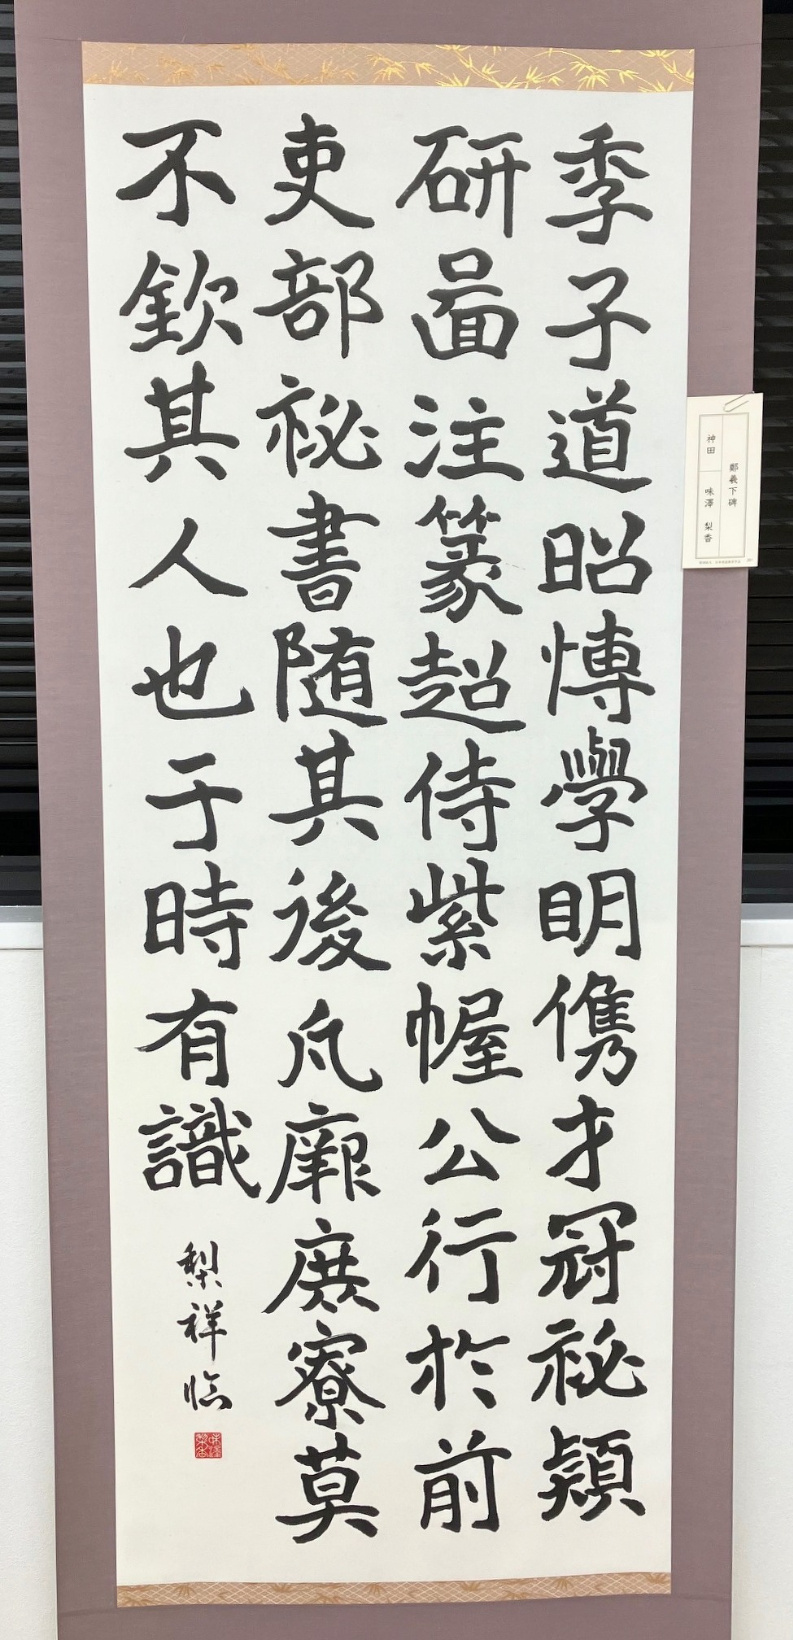 季子道昭愽學明儁才冠祕頴
研啚注篆超侍紫幄公行於前
吏部祕書随其後凢厥庶寮莫
不欽其人也于時有識
梨祥臨
鄭羲下碑
神田 味澤 梨香